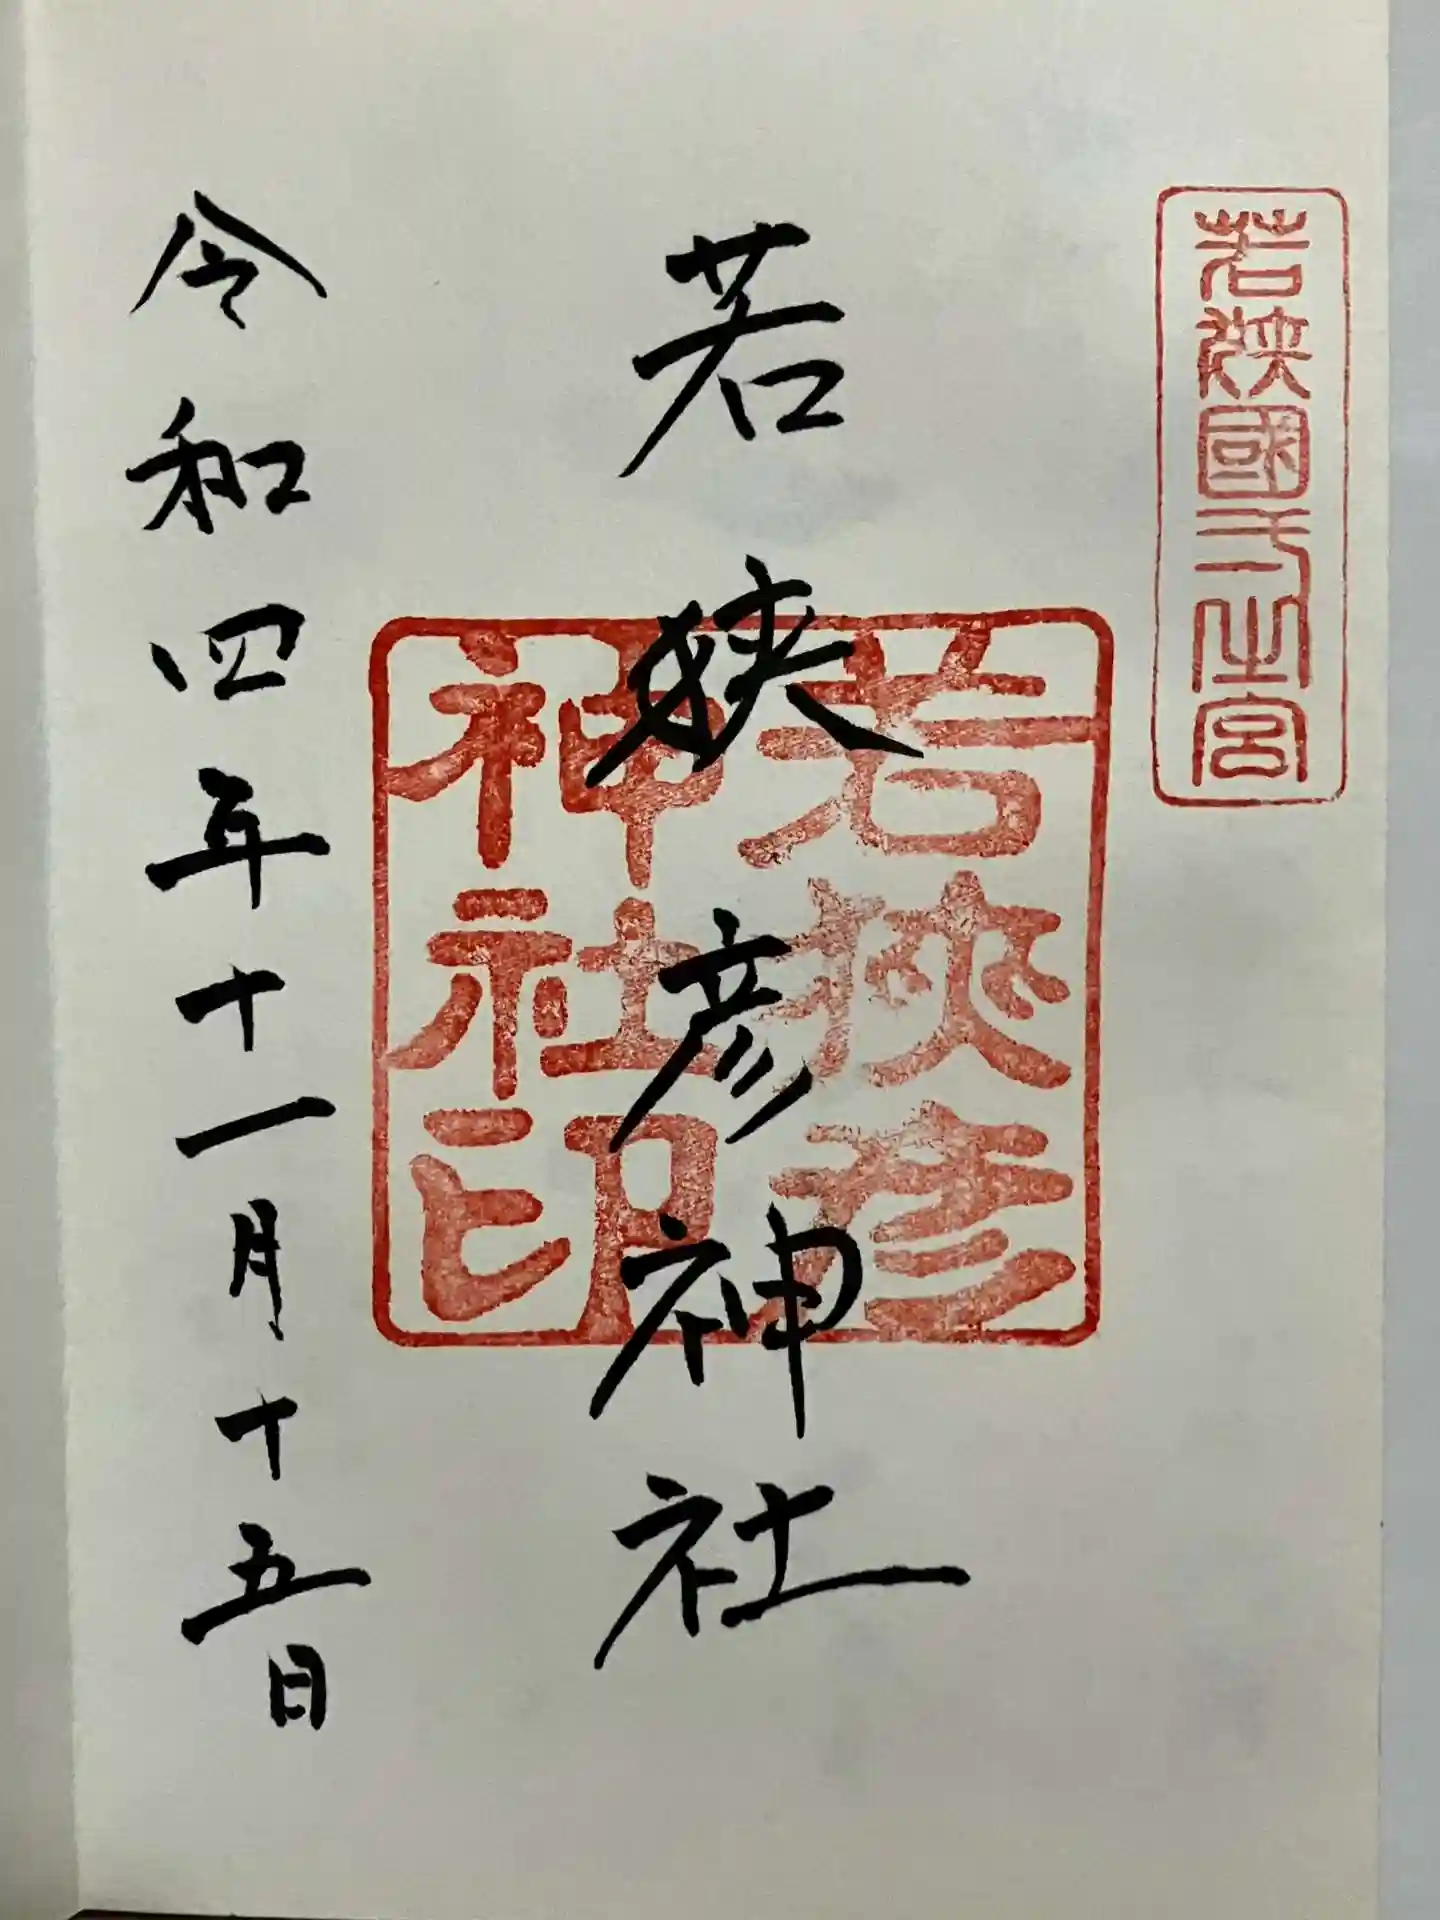 若狭國一之宮
若狭彦神社
若狹彦
神社印
令和四年十一月十五日